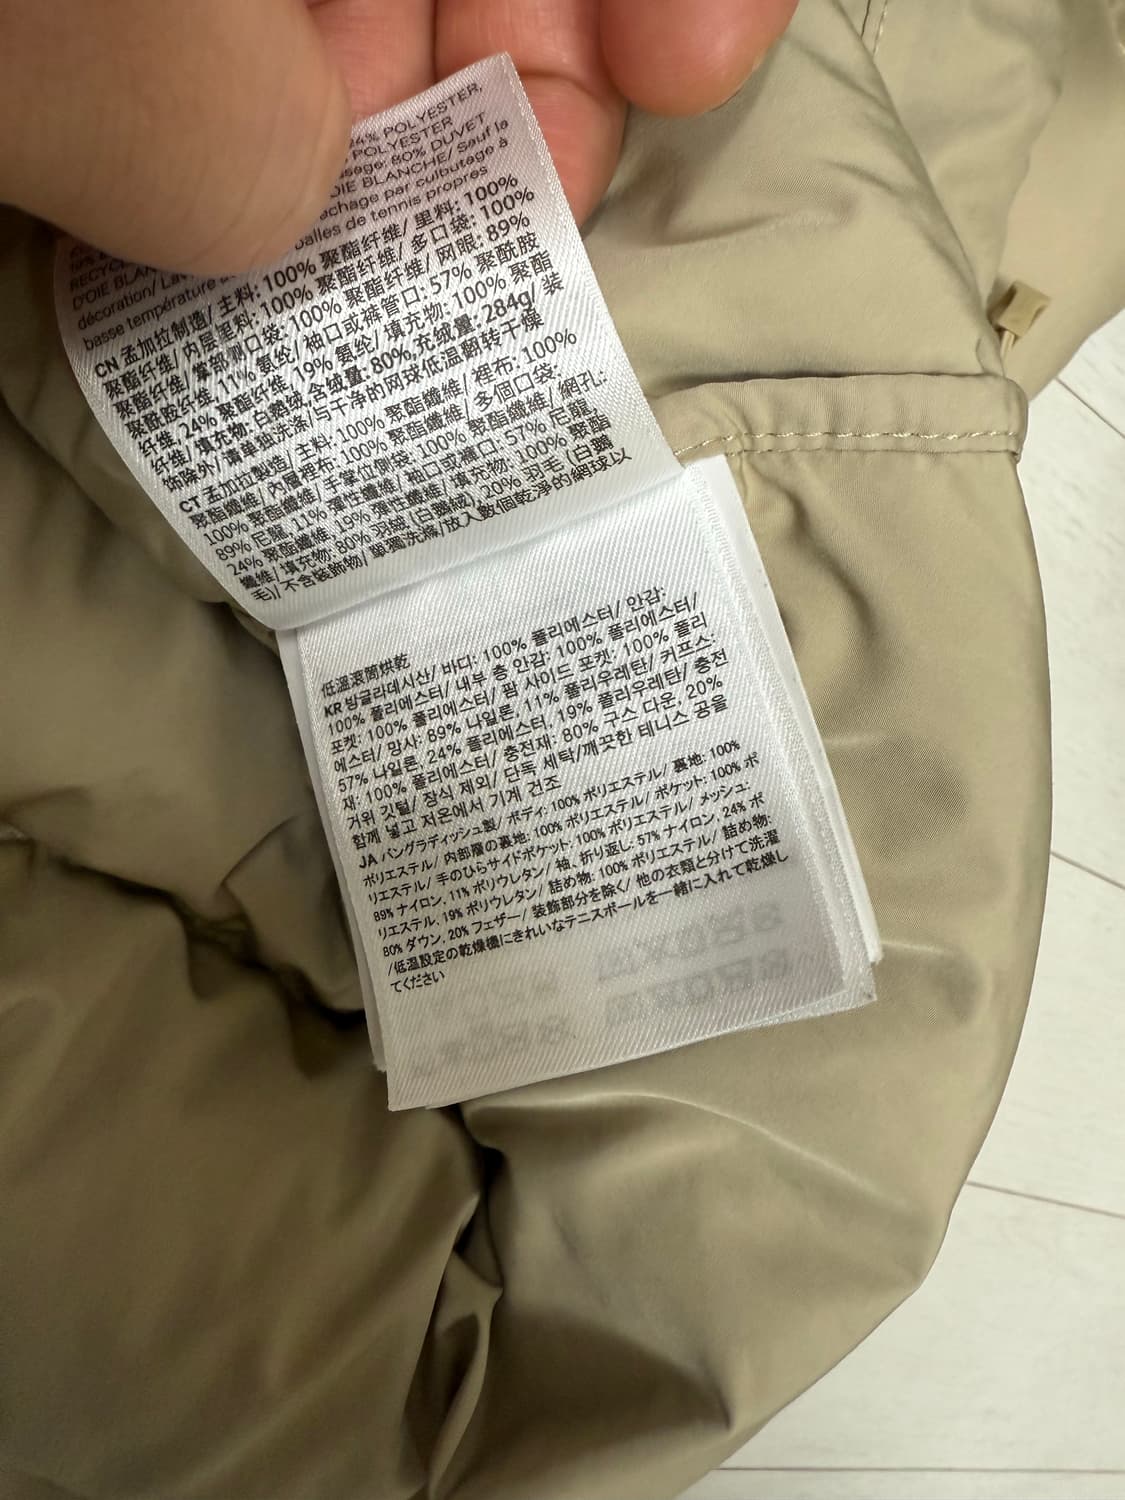 4% POLYESTER,
POLYESTER
80% DUVET
OIE BLANCHE/ Sauf la
achage par culbutage à
balles de tennis propres
D'OIE BLAN
décoration/
basse température
CN 孟加拉制造/ 主料: 100% 聚酯纤维/ 里料: 100%
聚酯纤维/ 内层里料: 100% 聚酯纤维/ 多口袋: 100%
聚酯纤维/ 掌部测口袋: 100% 聚酯纤维/ 网眼: 89%
聚酰胺纤维, 11% 氨纶/ 袖口或裤管口: 57% 聚酰胺
纤维, 24% 聚酯纤维, 19% 氨纶/ 填充物: 100% 聚酯
纤维/ 填充物: 白鹅绒, 含绒量: 80%, 充绒量: 284g/ 装
饰除外/ 请单独洗涤/与干净的网球低温翻转干燥
CT 孟加拉製造/ 主料: 100% 聚酯纖維/ 裡布: 100%
聚酯纖維/ 內層裡布: 100% 聚酯纖維/ 多個口袋:
100% 聚酯纖維/ 手掌位側袋: 100% 聚酯纖維/ 網孔:
89% 尼龍, 11% 彈性纖維/ 袖口或褲口: 57% 尼龍,
24% 聚酯纖維, 19% 彈性纖維/ 填充物: 100% 聚酯
纖維/ 填充物: 80% 羽絨 (白鵝絨), 20% 羽毛 (白鵝
毛)/ 不含裝飾物/ 單獨洗滌/放入數個乾淨的網球以
低溫滾筒烘乾
KR 방글라데시산/ 바디: 100% 폴리에스터/ 안감:
100% 폴리에스터/ 내부 층 안감: 100% 폴리에스터/
포켓: 100% 폴리에스터/ 팜 사이드 포켓: 100% 폴리
에스터/ 망사: 89% 나일론, 11% 폴리우레탄/ 커프스:
57% 나일론, 24% 폴리에스터, 19% 폴리우레탄/ 충전
재: 100% 폴리에스터/ 충전재: 80% 구스 다운, 20%
거위 깃털/ 장식 제외/ 단독 세탁/깨끗한 테니스 공을
함께 넣고 저온에서 기계 건조
JA バングラディッシュ製/ ボディ: 100% ポリエステル/ 裏地: 100%
ポリエステル/ 内部層の裏地: 100% ポリエステル/ ポケット: 100% ポ
リエステル/ 手のひらサイドポケット: 100% ポリエステル/ メッシュ:
89% ナイロン, 11% ポリウレタン/ 袖、折り返し: 57% ナイロン, 24% ポ
リエステル, 19% ポリウレタン/ 詰め物: 100% ポリエステル/ 詰め物:
80% ダウン, 20% フェザー/ 装飾部分を除く/ 他の衣類と分けて洗濯
/低温設定の乾燥機にきれいなテニスボールを一緒に入れて乾燥し
てください